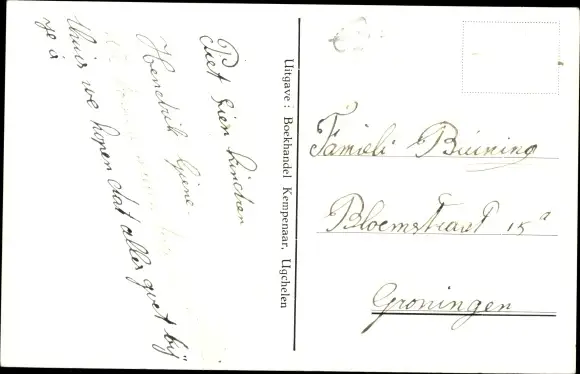 Piet Sien Sinchen
Hendrik Gene
thuis we hopen dat alles goet bij
je is
Uitgave: Boekhandel Kempenaar, Ugchelen
Famieli Buining
Bloemstraat 15a
Groningen